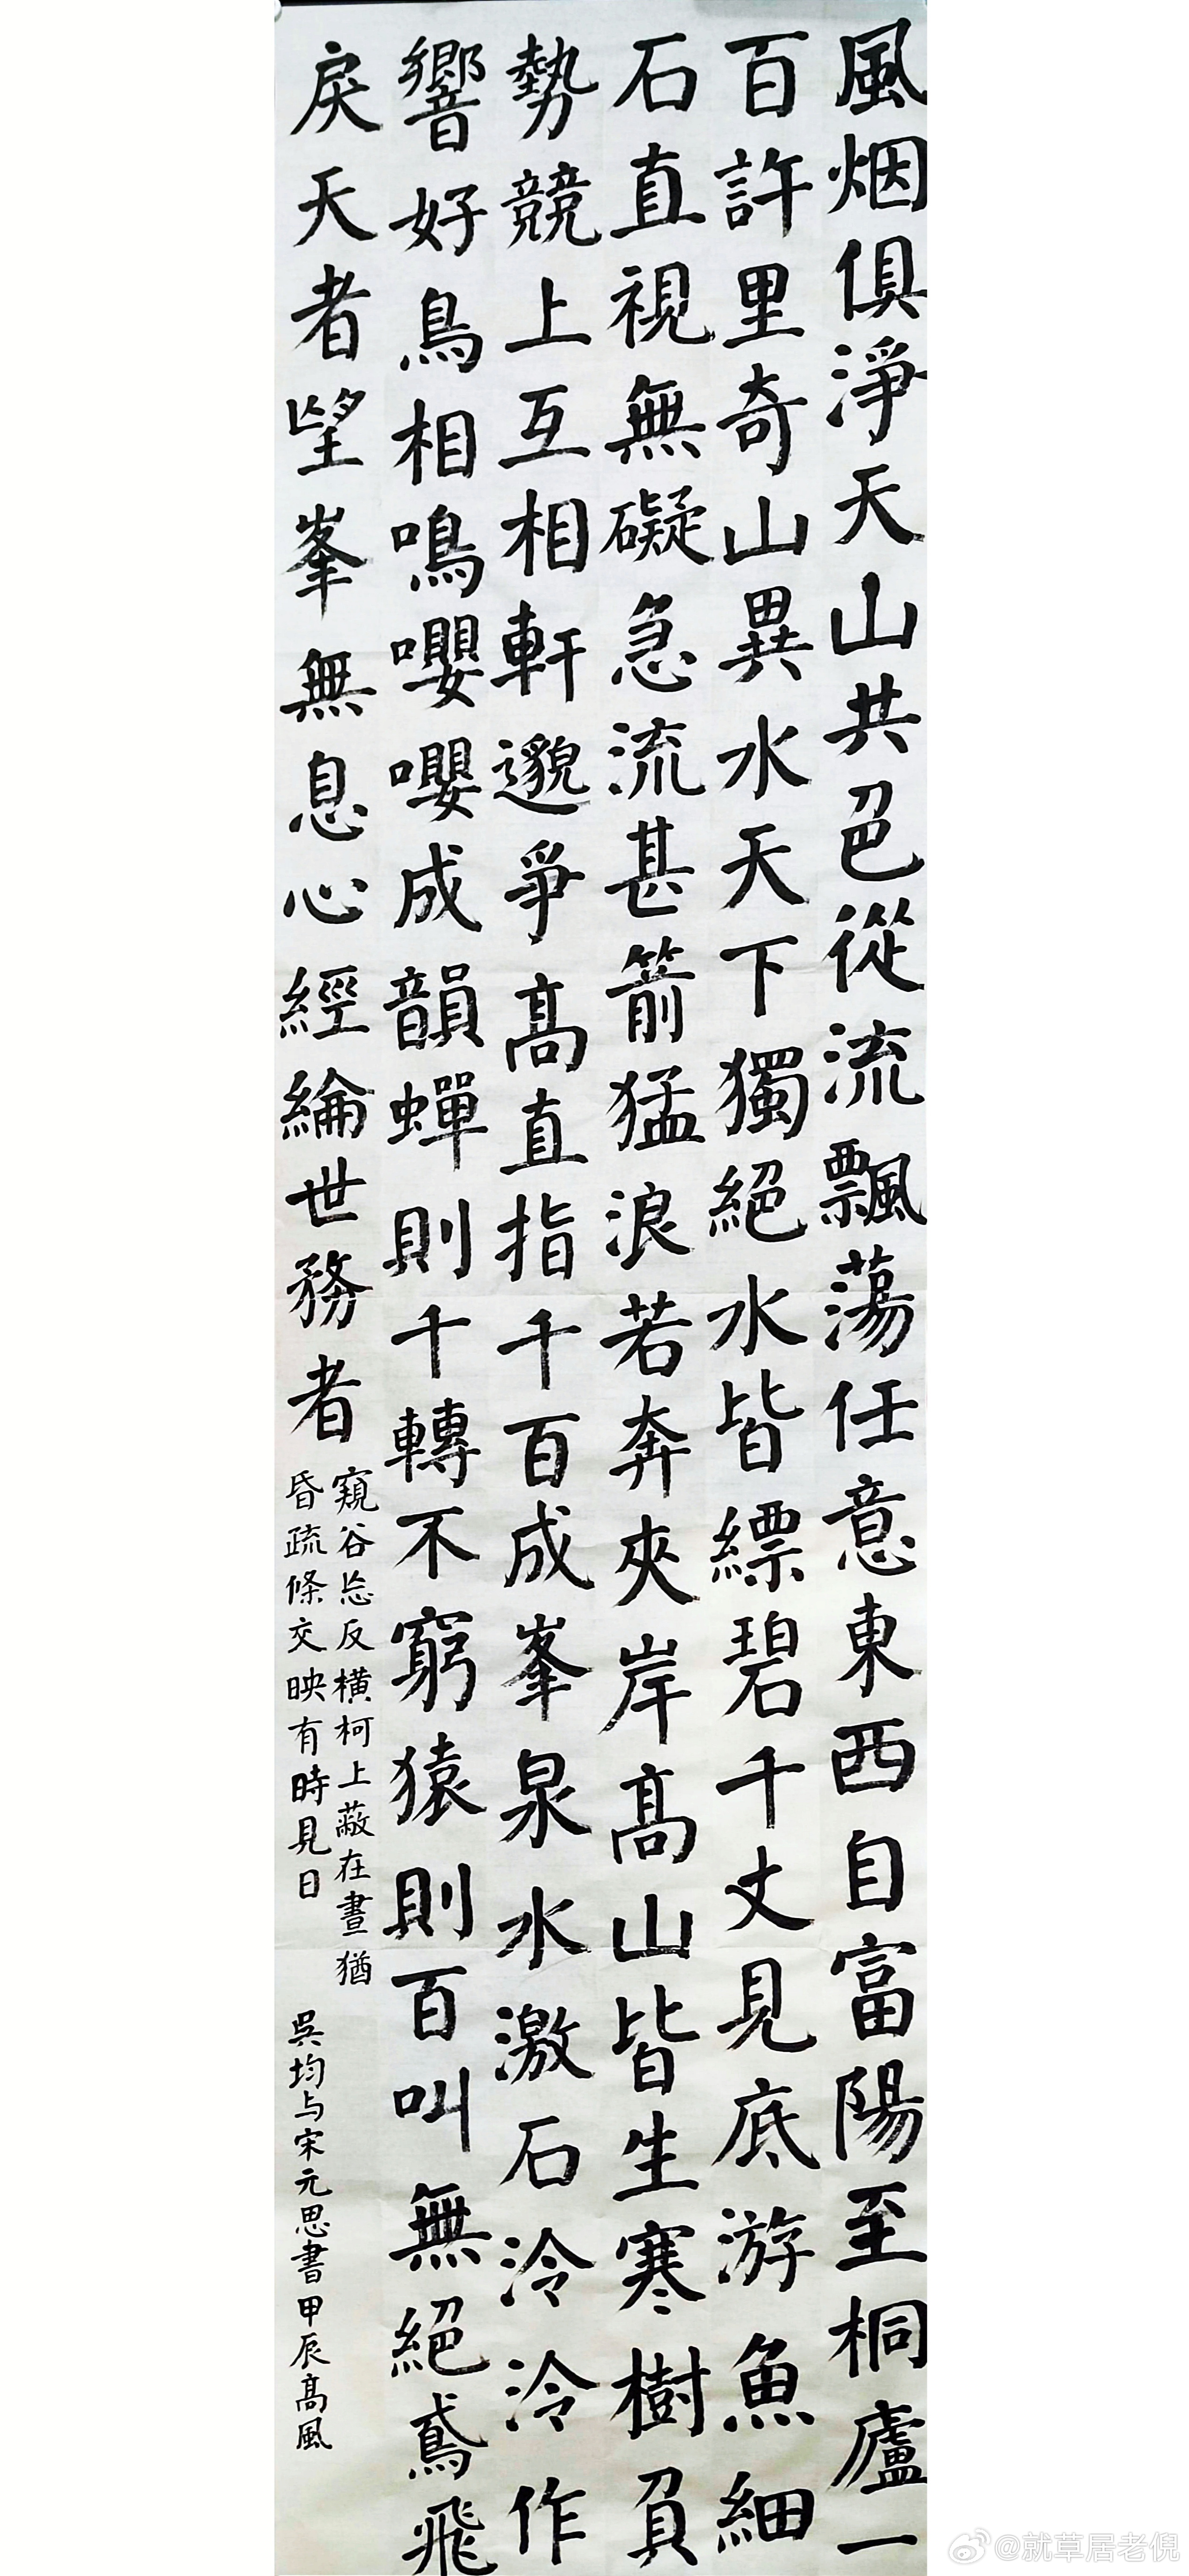 風烟俱淨天山共色從流飄蕩任意東西自富陽至桐廬一
百許里奇山異水天下獨絕水皆縹碧千丈見底游魚細
石直視無礙急流甚箭猛浪若奔夾岸高山皆生寒樹負
勢競上互相軒邈爭高直指千百成峯泉水激石泠泠作
響好鳥相鳴嚶嚶成韻蟬則千轉不窮猿則百叫無絕鳶飛
戾天者望峯無息心經綸世務者
窺谷忘反橫柯上蔽在晝猶
昏疏條交映有時見日
吳均与宋元思書甲辰高風
@就草居老倪